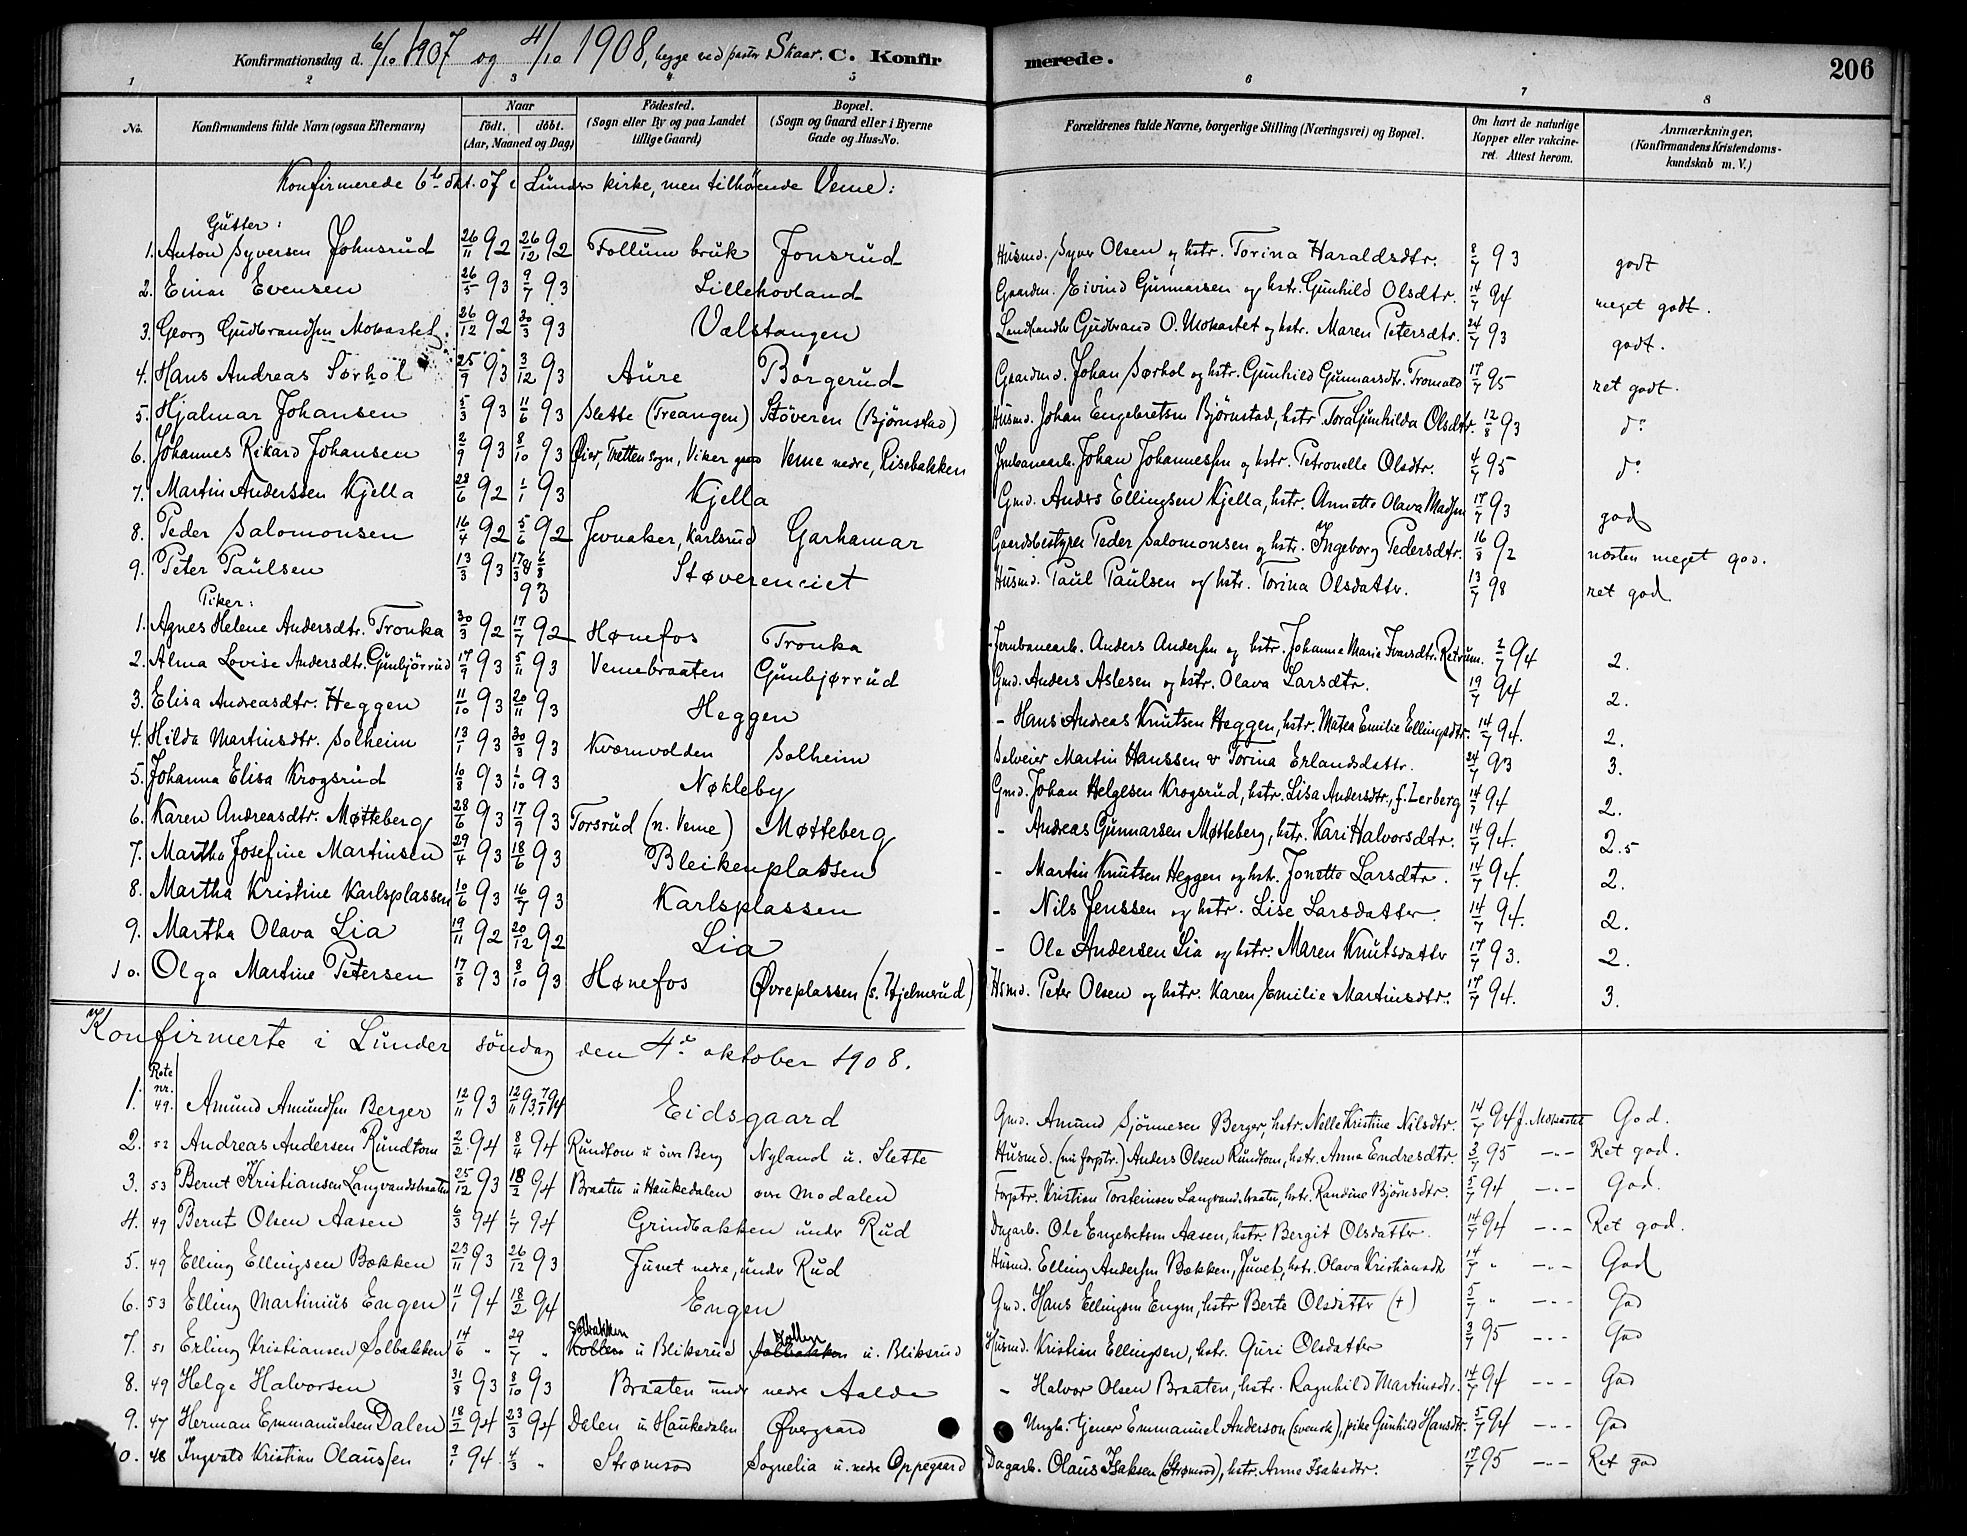 Konfirmationsdag d. 6/10 1907 og 4/10 1908, begge ved pastor Skaar. C. Konfirmerede. 206
1 2 3 4 5 6 7 8
No. Konfirmandens fulde Navn (ogsaa Efternavn) Naar født. døbt. (Aar, Maaned og Dag) Fødested. (Sogn eller By og paa Landet tillige Gaard) Bopæl. (Sogn og Gaard eller i Byerne Gade og Hus-No. Forældrenes fulde Navne, borgerlige Stilling (Næringsvei) og Bopæl. Om havt de naturlige Kopper eller vakcineret. Attest herom. Anmærkninger. (Konfirmandens Kristendomskundskab m. V.)
Konfirmerede 6te okt. 07 i Lunder kirke, men tilhørende Veme:
Gutter:
1. Anton Syversen Johnsrud 26/11 92 26/12 92 Follum bruk Jonsrud Husmd. Syver Olsen og hstr. Torina Haraldsdtr. 8/7 93 godt
2. Einar Evensen 26/5 93 9/7 93 Lillehovland Gaardm. Eivind Gunnarsen og hstr. Gunhild Olsdtr. 14/7 94 meget godt.
3. Georg Gudbrandsen Mokastet 26/12 92 30/3 93 Vælstangen Landhandler Gudbrand O. Mokastet og hstr. Maren Petersdtr. 24/7 93 godt.
4. Hans Andreas Sørhol 25/9 93 3/12 93 Aure Børgerud Gaardmd. Johan Sørhol og hstr. Gunhild Gunnarsdtr. Tromald 17/7 95 ret godt.
5. Hjalmar Johansen 5/3 93 11/6 93 Slette (Treangen) Støveren (Bjørnstad) Husmd. Johan Engebretsen Bjørnstad, hstr. Tora Gunhilda Olsdtr. 12/8 93 do
6. Johannes Rikard Johansen 2/9 93 8/10 93 Øier, Tretten sogn, Viker Veme nedre, Risebakken Jernbanearb. Johan Johannessen og hstr. Petronelle Olsdtr. 4/7 95 do
7. Martin Anderssen Kjella 28/6 92 1/1 93 Kjella Gmd. Anders Ellingsen Kjella, hstr. Annette Olava Madsen 17/7 93 god
8. Peder Salomonsen 16/4 92 5/6 92 Jevnaker, Karlsrud Garhamar Gaardsbestyrer Peder Salomonsen og hstr. Ingeborg Pedersdtr. 16/8 92 næsten meget god.
9. Peter Paulsen 13/3 93 17/3 & 6/8 93 Støvereneiet Husmd. Paul Paulsen og hstr. Torina Olsdatter. 13/7 98 ret god
Piker:
1. Agnes Helene Andersdtr. Tronka 30/3 92 17/7 92 Hønefos Tronka Jernbanearb. Anders Andersen og hstr. Johanne Marie Ivarsdtr. 2/7 94 2.
2. Alma Lovise Andersdtr. Gunbjørrud 17/9 93 5/11 93 Vemebraaten Gunbjørrud Gmd. Anders Aslesen og hstr. Olava Larsdtr. 19/7 94 2.
3. Elisa Andreasdtr. Heggen 11/10 93 20/11 93 Heggen - Hans Andreas Knutsen Heggen, hstr. Matea Emilie Ellingsdtr. 14/7 94. 2.
4. Hilda Martinsdtr. Solheim 13/1 93 30/3 93 Kvernvolden Solheim Selveier Martin Hanssen & Torina Erlandsdatter. 24/7 93 3.
5. Johanna Elisa Krogsrud 10/8 93 1/10 93 Nøkleby Gmd. Johan Helgesen Krogsrud, hstr. Lisa Andersdtr., f. Lerberg 14/7 94 2.
6. Karen Andreasdtr. Møtteberg 28/6 93 17/9 93 Torsrud (n. Veme) Møtteberg - Andreas Gunnarsen Møtteberg, hstr. Kari Halvorsdtr. 14/7 94. 2.5
7. Martha Josefine Martinsen 29/4 93 18/6 93 Bleikenplassen - Martin Knutsen Heggen og hstr. Jonette Larsdtr. 14/7 94. 2.
8. Martha Kristine Karlsplassen 10/6 93 16/7 93 Karlsplassen - Nils Jenssen og hstr. Lise Larsdatter. 14/7 94. 2.
9. Martha Olava Lia 19/11 92 20/12 92 Lia - Ole Andersen Lia og hstr. Maren Knutsdatter 17/7 93. 2.
10. Olga Martine Petersen 17/8 93 8/10 93 Hønefos Øvreplassen (s. Hjelmerud) Hsmd. Peter Olsen og hstr. Karen Emilie Martinsdtr. 17/7 94. 3.
Konfirmerte i Lunder søndag den 4de oktober 1908.
Rote nr.
1. 49. Amund Amundsen Berger 12/11 93 12/11 93. 7/1 94 Eidsgaard Gmd. Amund Sjønnesen Berger, hstr. Nelle Kristine Nilsdtr. 14/7 94 J. Mokastet God.
2. 52 Andreas Andersen Rundtom 2/2 94 8/4 94 Rundtom u øvre Berg Nyland u. Slette Husmd. (nu forptr.) Anders Olsen Rundtom, hstr. Anna Endresdtr. 3/7 95 -"- Ret god.
3. 53 Bernt Kristiansen Langvandsbraaten 25/12 93 18/2 94 Braaten u Haukedalen øvre Modalen Forptr. Kristian Torsteinsen Langvandsbraaten, hstr. Randine Bjørnsdtr. 5/7 94 -"- God.
4. 49 Bernt Olsen Aasen 6/3 94 1/7 94 Grindbakken under Rud Dagarb. Ole Engebretsen Aasen, hstr. Bergit Olsdatter. 14/7 94 -"- Ret god.
5. 49 Elling Ellingsen Bækken 23/11 93 26/12 93 Juvet nedre, under Rud Husmd. Elling Andersen Bækken, Juvet, hstr. Olava Kristiansdtr 14/7 " -"- God
6. 53 Elling Martinius Engen 11/1 94 18/2 94 Engen Gmd. Hans Ellingsen Engen, hstr Berte Olsdatter (+) 5/7 " -"- God
7. 51 Erling Kristiansen Solbakken 14/6 " 29/7 " Solbakken Kollen u Bliksrud Kollen Solbakken u. Bliksrud Husmd. Kristian Ellingsen, hstr. Guri Olsdatter 3/7 95 -"- God
8. 49 Helge Halvorsen 31/8 93 8/10 93 Braaten under nedre Aalde - Halvor Olsen Braaten, hstr. Ragnhild Martinsdtr. 14/7 94 -"- God
9. 47 Herman Emmanuelsen Dalen 18/2 94 23/3 94 Dalen u Haukedalen Øvergaard Ungk. tjener Emmanuel Anderson (svensk), pike Gunhild Hansdtr. 5/7 94 -"- God
10. 48 Ingvald Kristian Olaussen 9/1 94 4/3 " Strømsod Sognelia u. nedre Oppegaard Dagarb. Olaus Isaksen (Strømsod), hstr. Anne Isaksdtr. 17/7 95 -"- Ret god